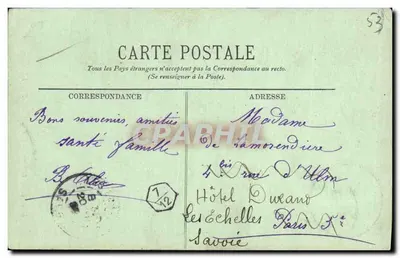 53
CARTE POSTALE
Tous les Pays étrangers n'acceptent pas la Correspondance au recto.
(Se renseigner à la Poste).
CORRESPONDANCE
ADRESSE
Bons souvenirs, amitiés
santé famille
Madame
de Lamorendiere
4 bis rue d'Ulm
Hôtel Durand
Les Echelles Paris 5e
Savoie
7/12